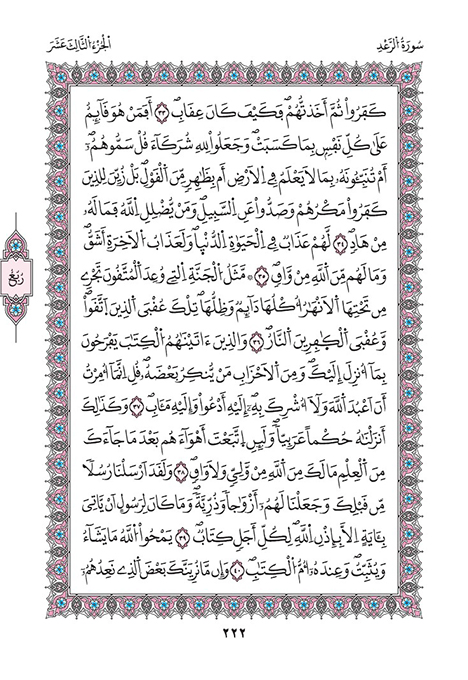 سُورَةُ الرَّعْدِ
الْجُزْءُ الثَّالِثَ عَشَرَ
كَفَرُواْ ثُمَّ أَخَذتُّهُمْ فَكَيْفَ كَانَ عِقَابِ ٣٣ أَفَمَنْ هُوَ قَآئِمٌ
عَلَىٰ كُلِّ نَفْسٍ بِمَا كَسَبَتْ وَجَعَلُواْ لِلهِ شُرَكَآءَ قُلْ سَمُّوهُمُۥٓ
أَمْ تُنَبِّـُٔونَهُۥ بِمَا لَا يَعْلَمُ فِے اِ۬لْأَرْضِ أَم بِظَٰهِرٍ مِّنَ اَ۬لْقَوْلِ بَلْ زُيِّنَ لِلذِينَ
كَفَرُواْ مَكْرُهُمْ وَصَدُّواْ عَنِ اِ۬لسَّبِيلِ وَمَنْ يُّضْلِلِ اِ۬للَّهُ فَمَا لَهُۥ
مِنْ هَادٍ ٣٤ لَّهُمْ عَذَابٌ فِے اِ۬لْحَيَوٰةِ اِ۬لدُّنْي۪ا وَلَعَذَابُ اُ۬لْأٓخِرَةِ أَشَقُّ
وَمَا لَهُم مِّنَ اَ۬للَّهِ مِنْ وَّاقٍ ٣٥ مَّثَلُ اُ۬لْجَنَّةِ اِ۬لتِے وُعِدَ اَ۬لْمُتَّقُونَ تَجْرِے
مِن تَحْتِهَا اَ۬لْأَنْهَٰرُ أُكْلُهَا دَآئِمٌ وَظِلُّهَا تِلْكَ عُقْبَى اَ۬لذِينَ اَ۪تَّقَواْ
وَّعُقْبَى اَ۬لْكٰ۪فِرِينَ اَ۬لنَّارُ ٣٦ وَالذِينَ ءَاتَيْنَٰهُمُ اُ۬لْكِتَٰبَ يَفْرَحُونَ
بِمَآ أُنزِلَ إِلَيْكَ وَمِنَ اَ۬لْأَحْزَابِ مَنْ يُّنكِرُ بَعْضَهُۥ قُلِ اِنَّمَآ أُمِرْتُ
أَنَ اَعْبُدَ اَ۬للَّهَ وَلَآ أُشْرِكَ بِهِۦٓ إِلَيْهِ أَدْعُواْ وَإِلَيْهِ مَـَٔابِ ٣٧ وَكَذَٰلِكَ
أَنزَلْنَٰهُ حُكْماً عَرَبِيّاً وَلَئِنِ اِ۪تَّبَعْتَ أَهْوَآءَهُم بَعْدَ مَا جَآءَكَ
مِنَ اَ۬لْعِلْمِ مَا لَكَ مِنَ اَ۬للَّهِ مِنْ وَّلِيٍّ وَلَا وَاقٍ ٣٨ وَلَقَدَ اَرْسَلْنَا رُسُلاً
مِّن قَبْلِكَ وَجَعَلْنَا لَهُمُۥٓ أَزْوَٰجاً وَذُرِّيَّةً وَمَا كَانَ لِرَسُولٍ اَنْ يَّاتِيَ
بِـَٔايَةٍ اِلَّا بِإِذْنِ اِ۬للَّهِ لِكُلِّ أَجَلٍ كِتَابٌ ٣٩ يَمْحُواْ اُ۬للَّهُ مَا يَشَآءُ
وَيُثَبِّتُ وَعِندَهُۥٓ أُمُّ اُ۬لْكِتَٰبِ ٤٠ وَإِن مَّا نُرِيَنَّكَ بَعْضَ اَ۬لذِے نَعِدُهُمُۥٓ
رُبُع
٢٢٢